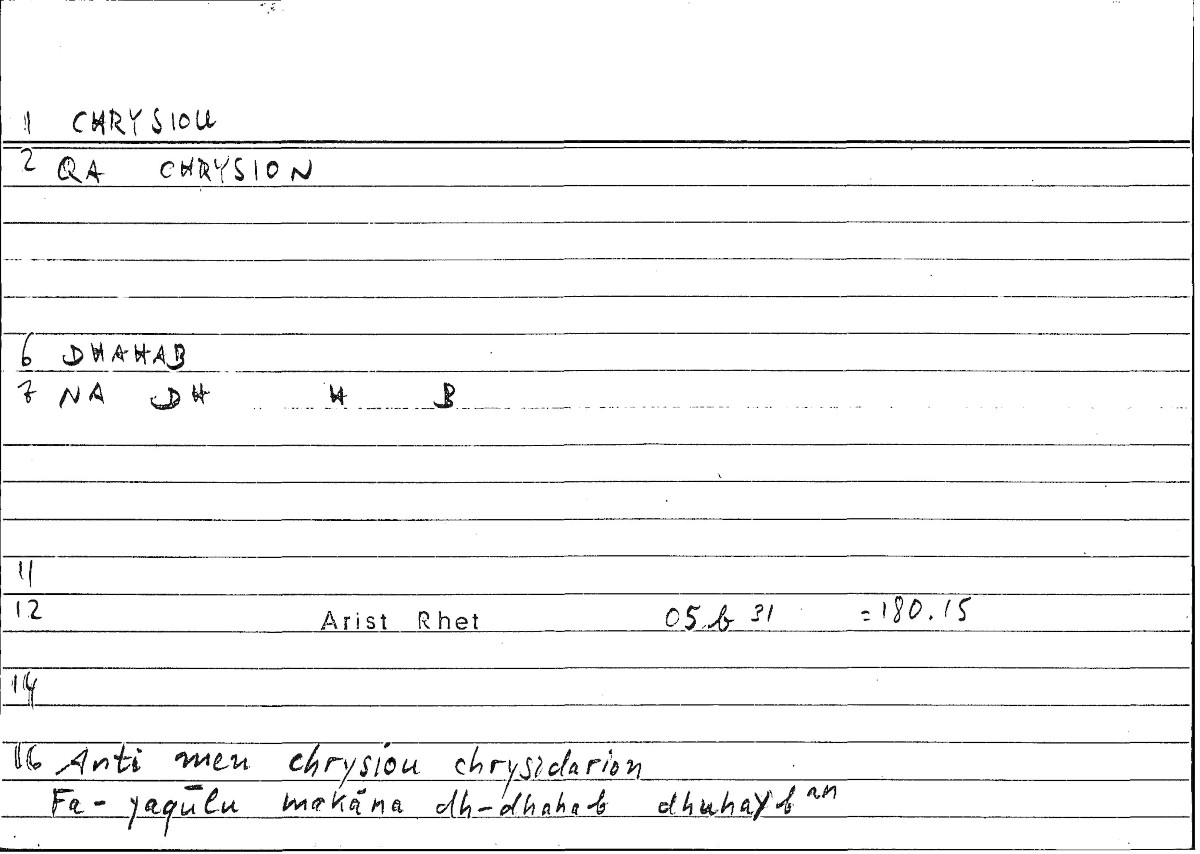 1 CHRYSIOU
2 QA CHRYSION
6 DHAHAB
7 NA DH H B
11
12 Arist Rhet 05 b 31 = 180.15
14
16 Anti men chrysíou chrysidarion
Fa-yaqūlu makāna dh-dhahab dhuhayb<sup>an</sup>